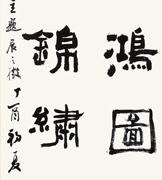 鴻圖
錦繡
主題展之徵丁酉初夏